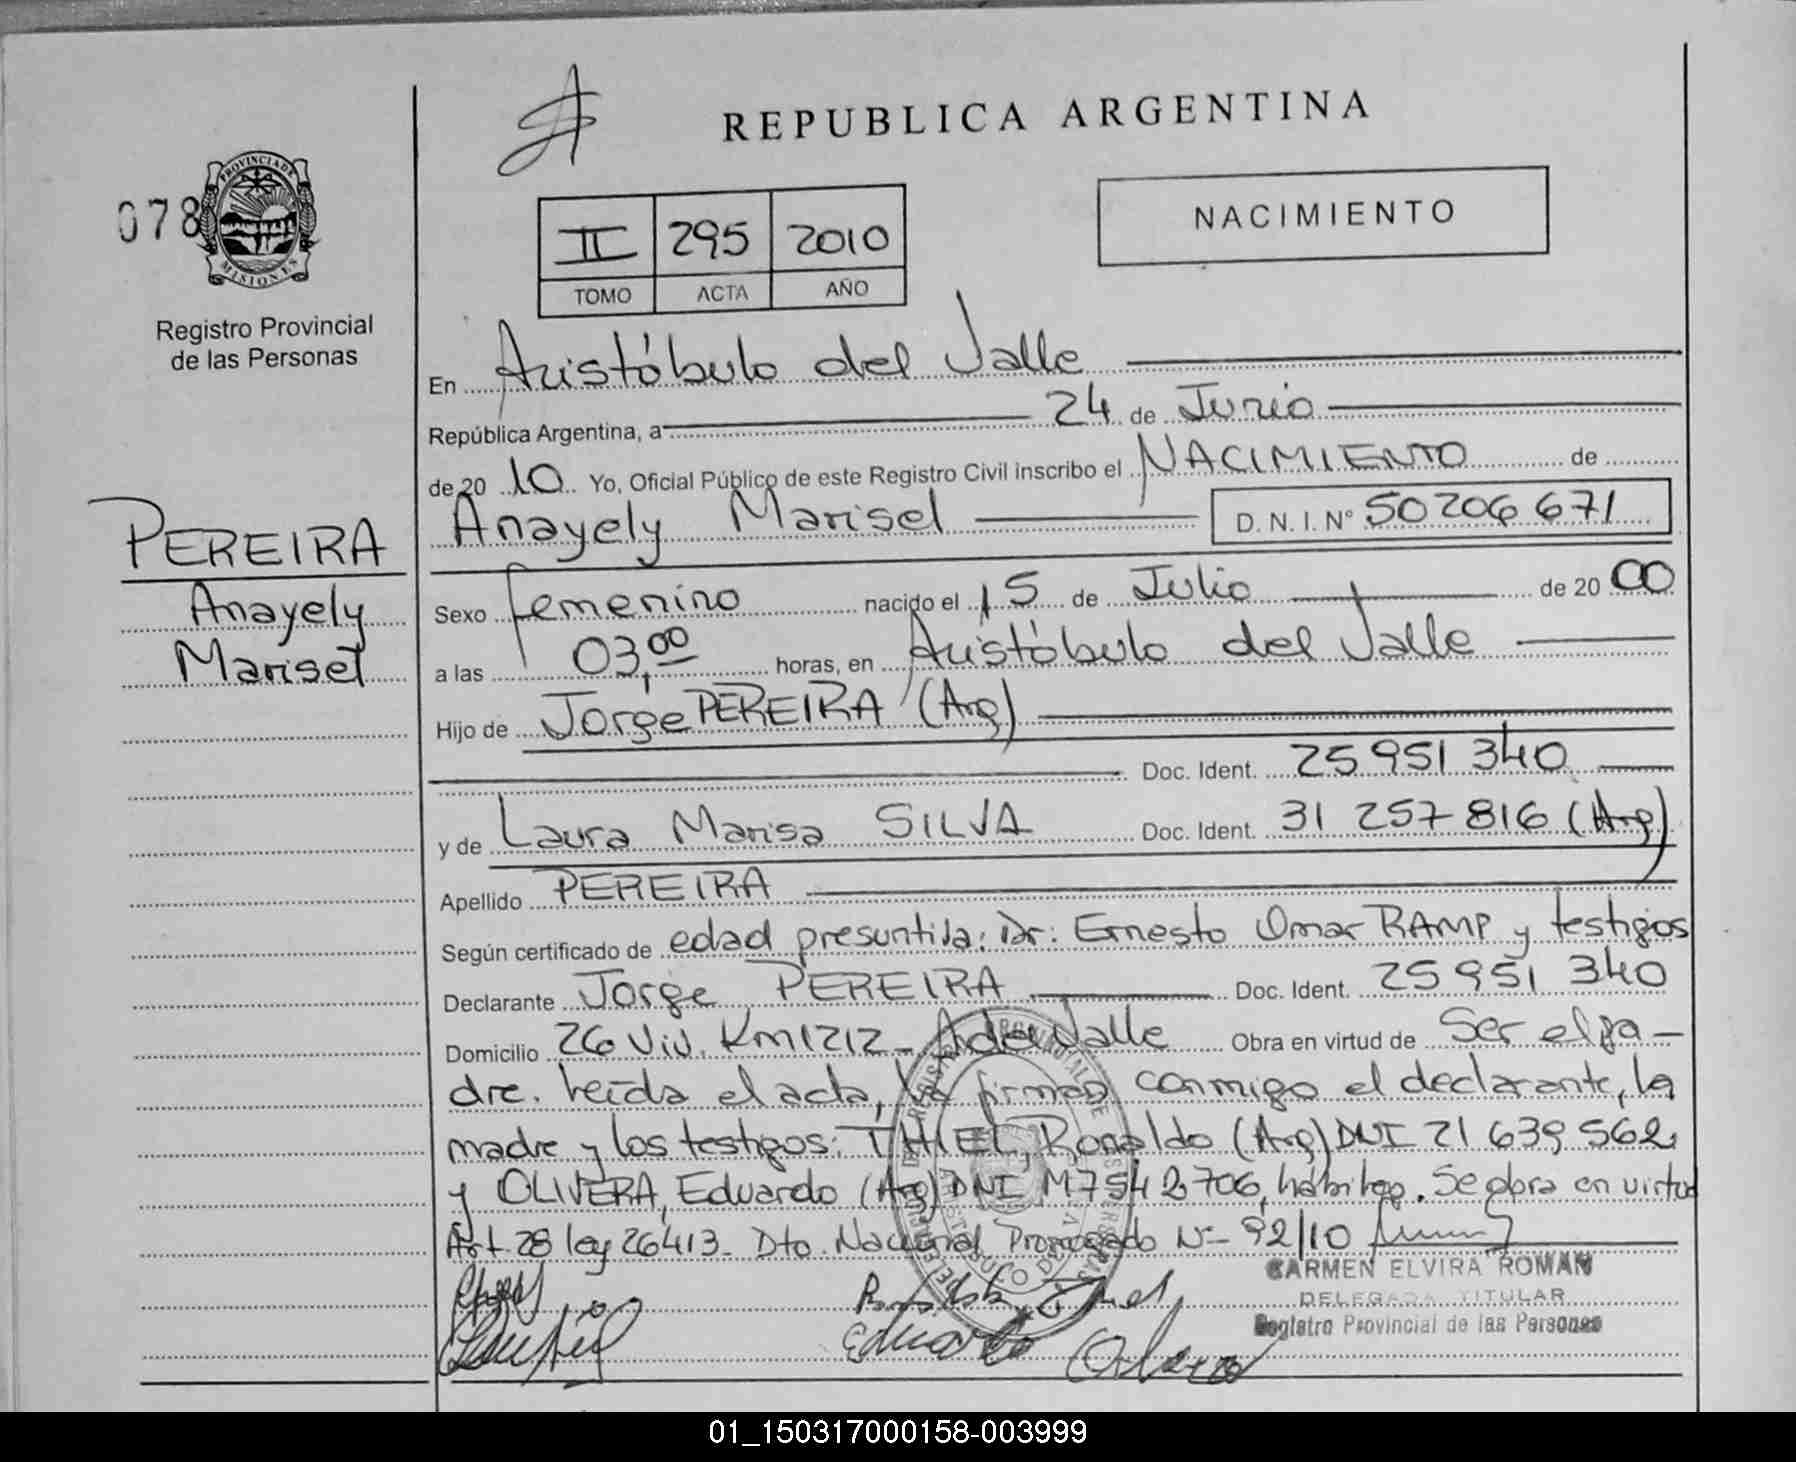 REPUBLICA ARGENTINA
078
PROVINCIA DE
MISIONES
Registro Provincial
de las Personas
II 295 2010
TOMO ACTA AÑO
NACIMIENTO
PEREIRA
Anayely
Marisel
En Aristóbulo del Valle
República Argentina, a 24 de Junio
de 20 10 Yo, Oficial Público de este Registro Civil inscribo el NACIMIENTO de
Anayely Marisel D. N. I. Nº 50 206 671
Sexo femenino nacido el 15 de Julio de 20 00
a las 03,00 horas, en Aristóbulo del Valle
Hijo de Jorge PEREIRA (Arg)
Doc. Ident. 25 951 340
y de Laura Marisa SILVA Doc. Ident. 31 257 816 (Arg)
Apellido PEREIRA
Según certificado de edad presuntiva: Dr: Ernesto Omar RAMP y testigos
Declarante Jorge PEREIRA Doc. Ident. 25 951 340
Domicilio 26 Viv. Km 1212 - A del Valle Obra en virtud de Ser el pa-
dre. Leída el acta, la firman conmigo el declarante, la
madre y los testigos: THIEL, Ronaldo (Arg) DNI 21 639 562
y OLIVERA, Eduardo (Arg) DNI M7542706, hábiles. Se obra en virtud
Art. 28 ley 26413 - Dto. Nacional Prorrogado Nº 92/10
CARMEN ELVIRA ROMAN
DELEGADA TITULAR
Registro Provincial de las Personas
Eduardo Olivera
01_150317000158-003999